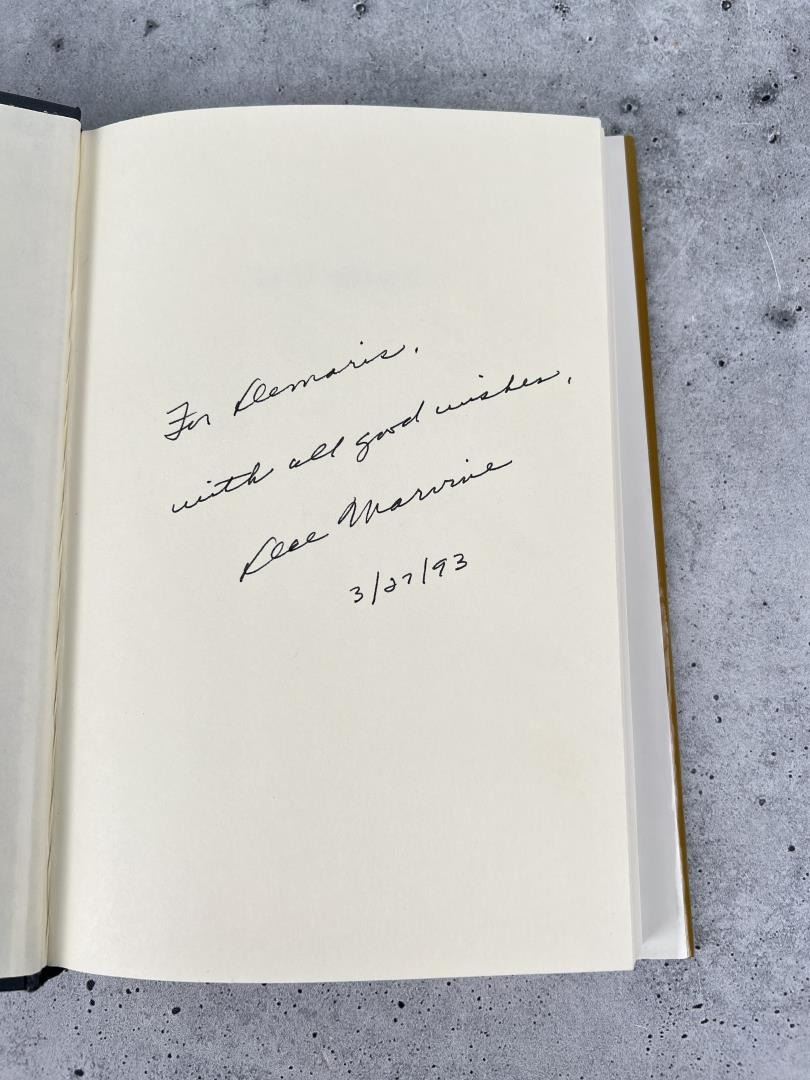 For Demaris,
with all good wishes,
Dee Marvine
3/27/93